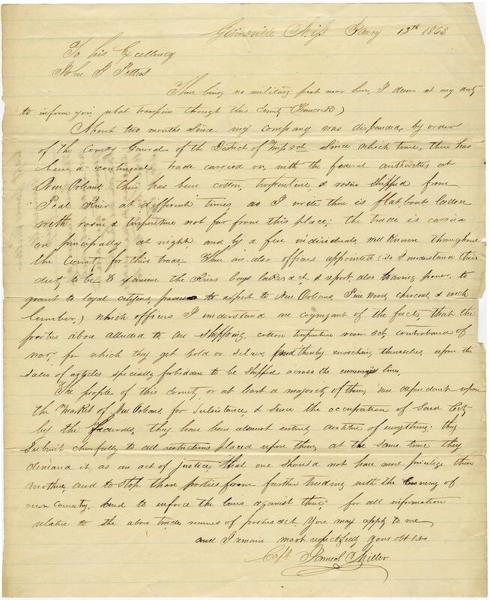 Gainesville Miss Jany 13th 1863
To his Excellency
Jno. J Pettus
There being no military post near here, I deem it my duty
to inform you, what transpires through this County (Hancock)
About two months since my company was disbanded, by order
of the County Guard of the District of Since which time, there has
been a continual trade carried on with the federal authorities at
New Orleans, there has been cotton, turpentine, & rosin shipped from
Pearl River at different times as I write there is flat boats laden
with rosin & turpentine not far from this place; the trade is carried
on principally at night and by a few individuals, well known throughout
the County for this trade. There are also officers appointed (as I understand their
duty to be, to examine the Rivers boats laden & report also having power, to
grant to loyal citizens, to export to New Orleans, Pine wood, charcoal & such
lumber,) which officers I understand are cognizant of the facts, that the
parties above alluded to are shipping cotton turpentine rosin &c contrabands of
war, for which they get Gold or Silver thereby enriching themselves, upon the
sales of articles specially forbidden to be shipped across the lines.
The people of this county, or at least a majority of them, are dependent upon
the Market of New Orleans for subsistence, & since the occupation of said City
by the they have been almost entirely destitute of everything; they
submit cheerfully to all restrictions placed upon them, at the same time they
demand it, as an act of justice, that one should not have more privilege than
another, and to stop those parties from further trading with the Enemy of
our Country, and to enforce the laws against them; for all information
relative to the above trade, names of parties &c, You may apply to me
and I remain most respectfully your obt
Samuel Miller